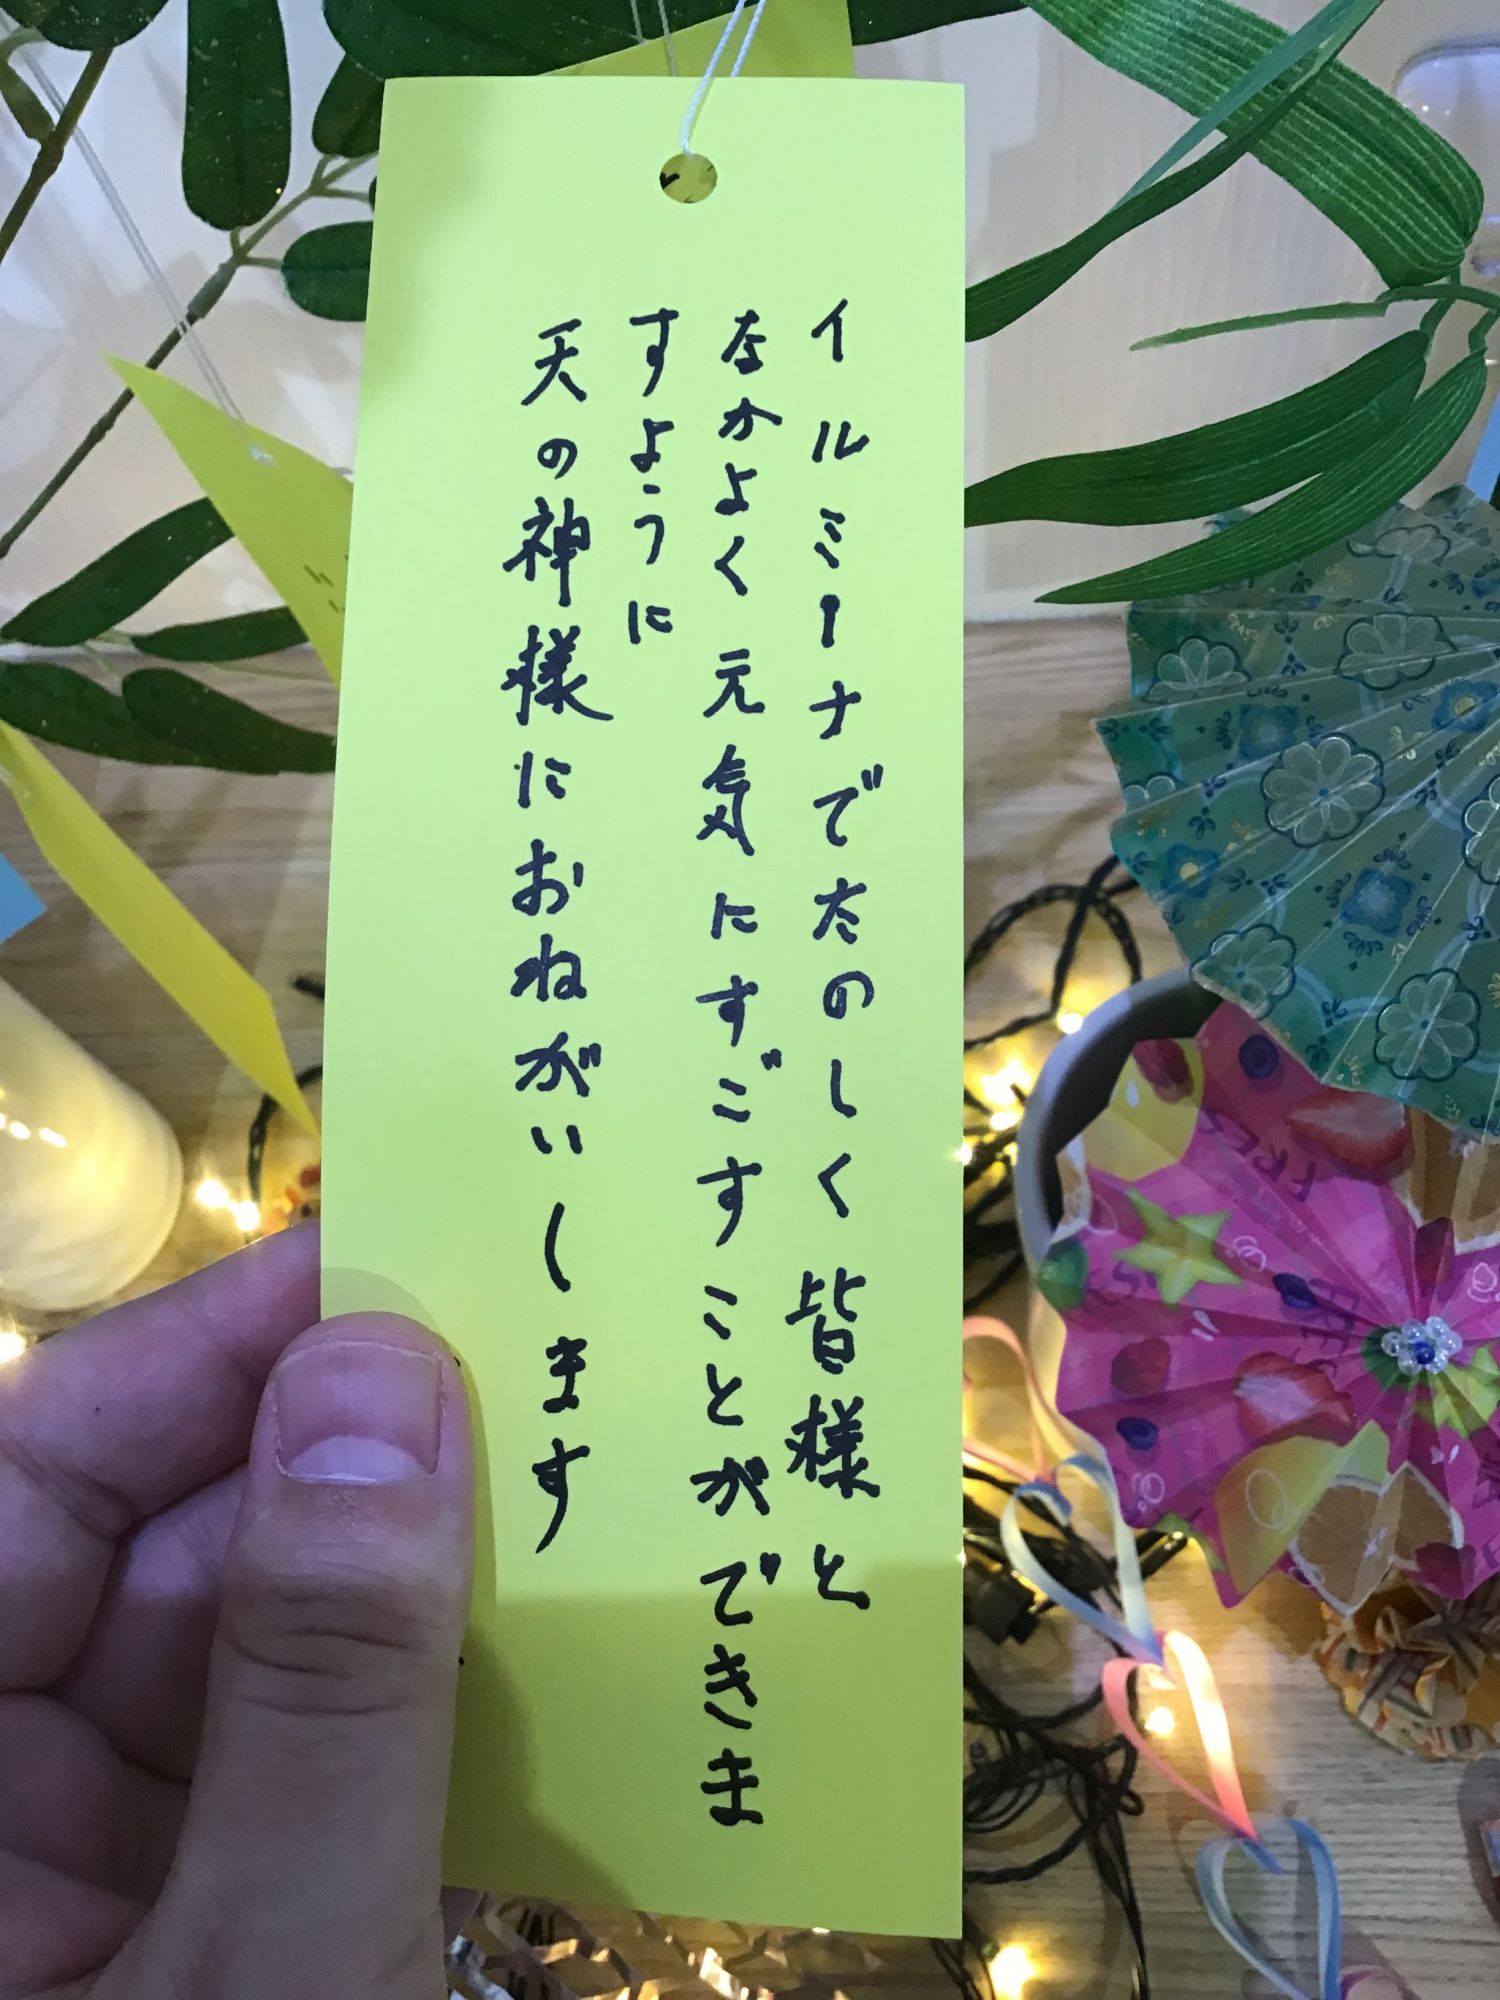 イルミーナでたのしく皆様と
なかよく元気にすごすことができま
すように
天の神様におねがいします
FRES